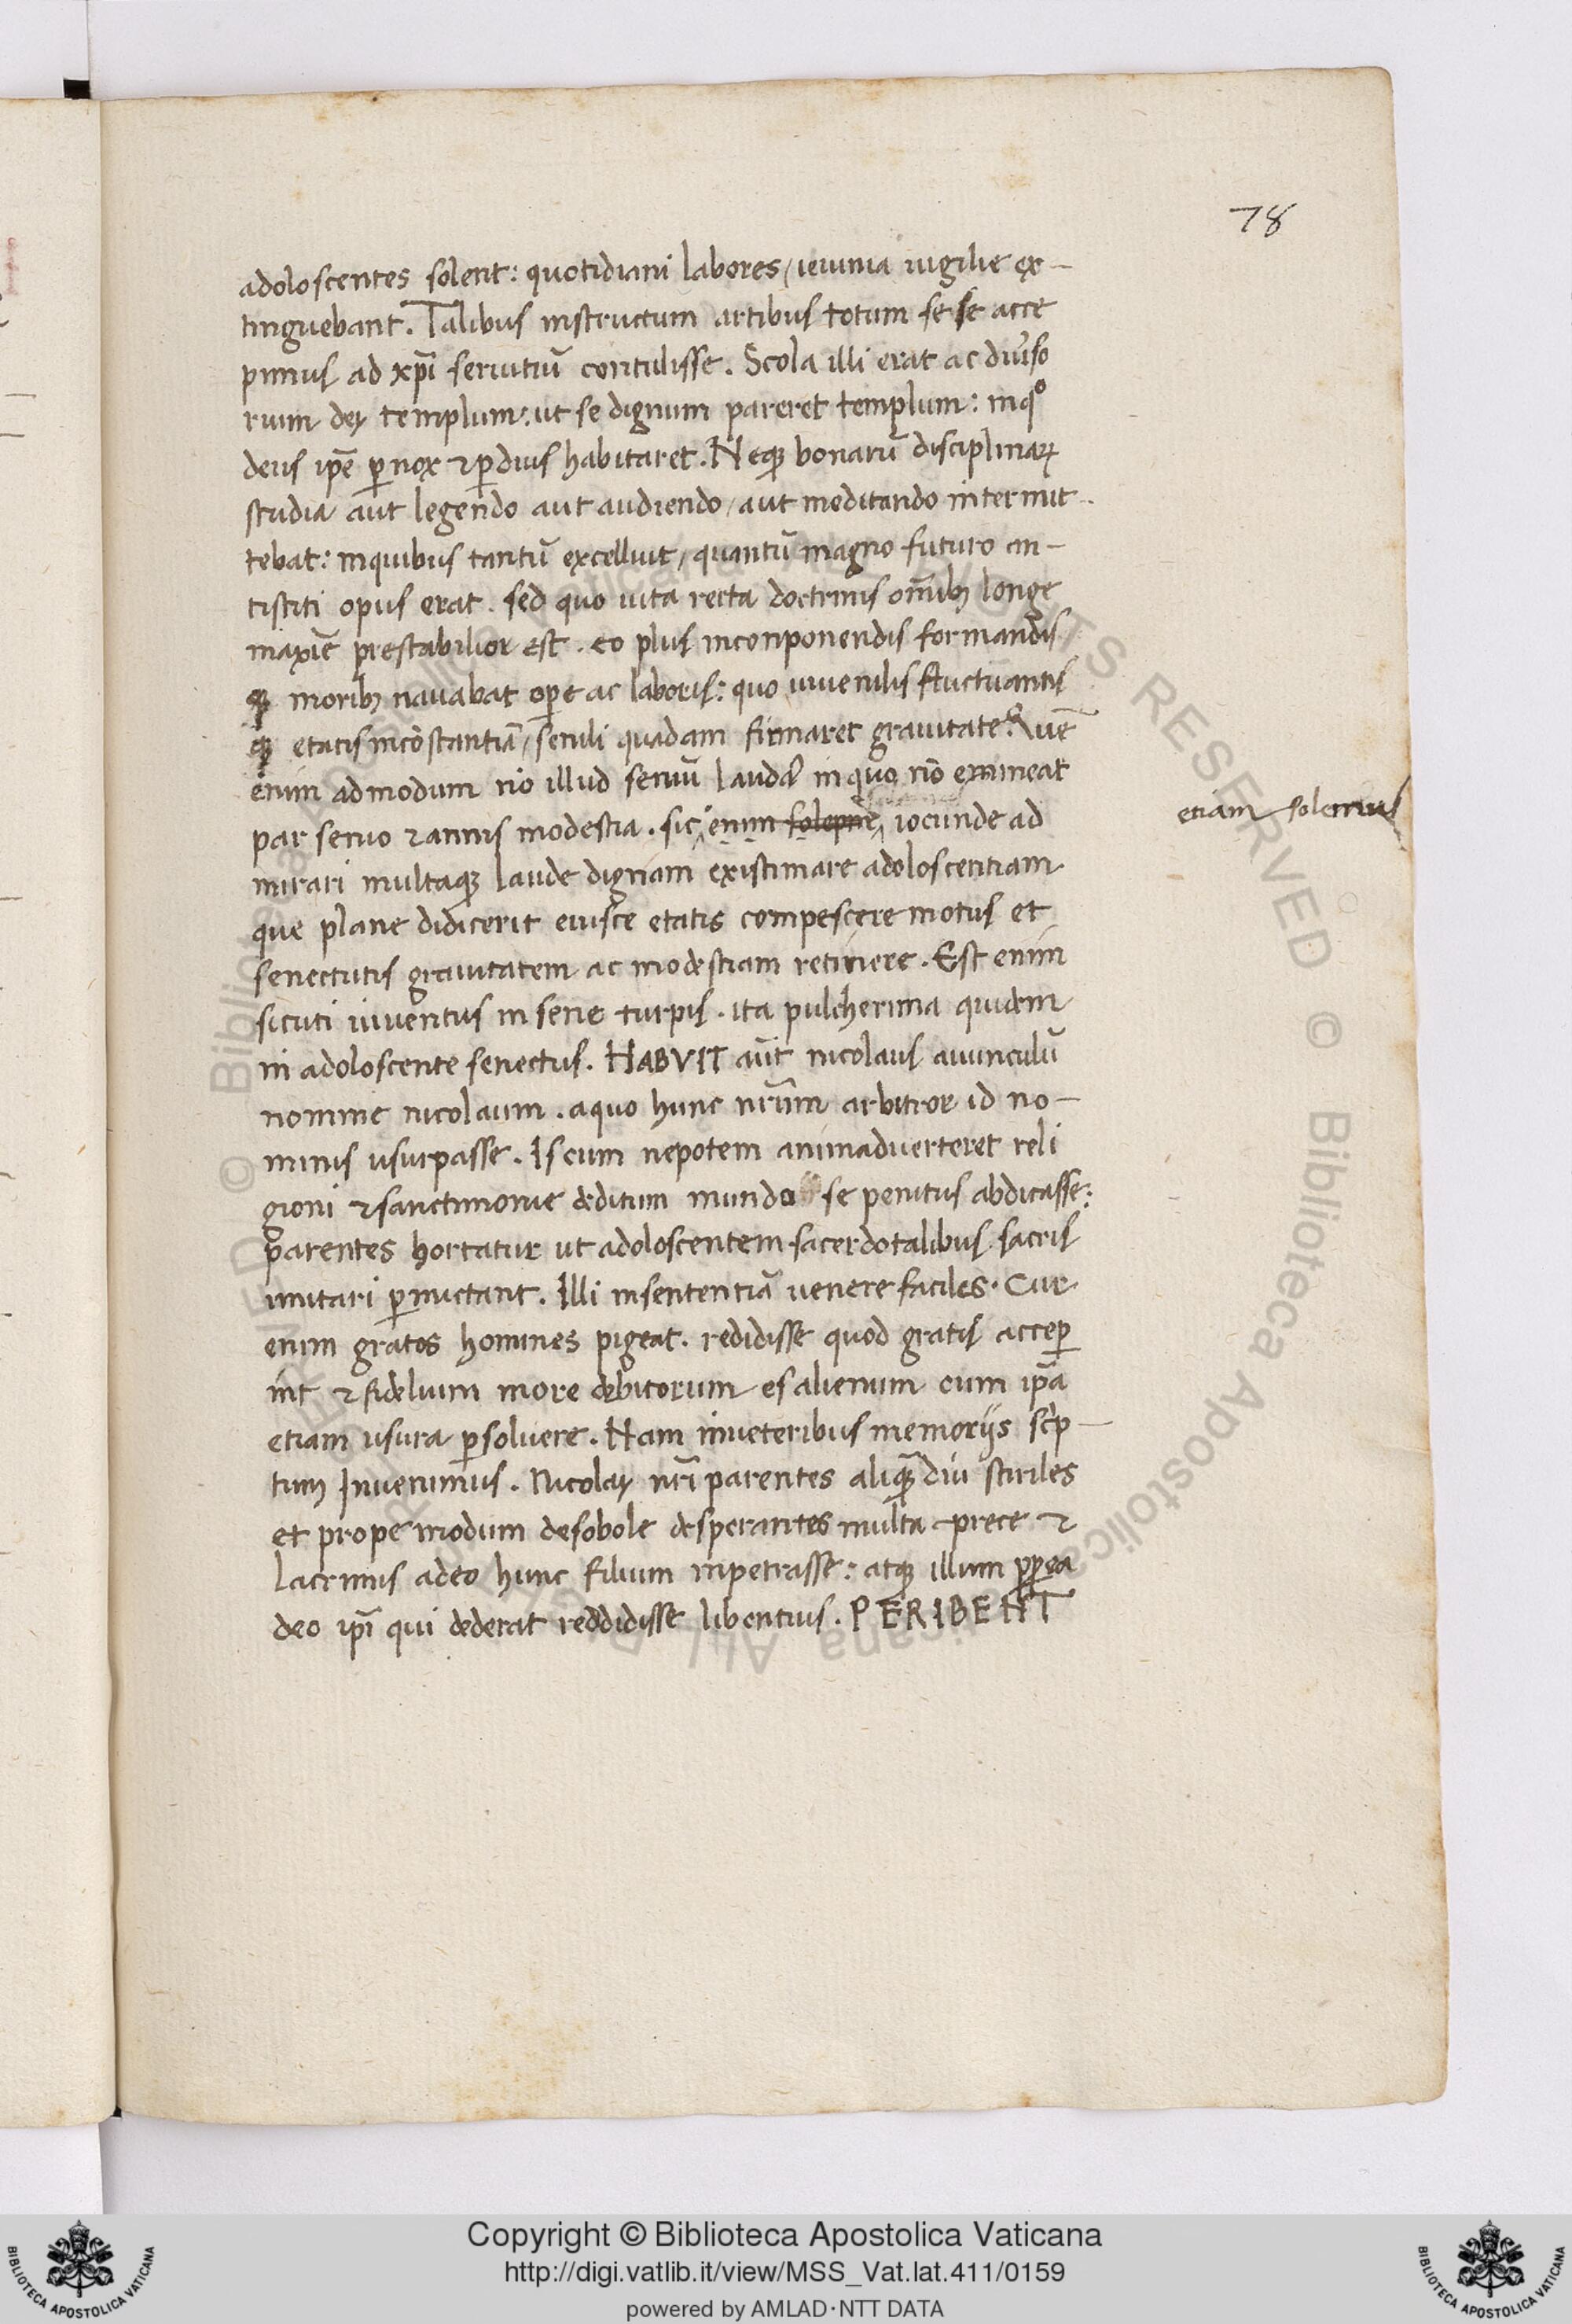 78
adoloscentes solent: quotidiani labores/ ieiunia uigilie ex-
tinguebant. Talibus instructum artibus totum se se acce
pimus ad xp̄i seruitiū contulisse. Scola illi erat ac diu̓so
rium dei templum: ut se dignum pareret templum: inqͦ
deus ip̄e ꝑnox ⁊ ꝑdius habitaret. Neqꝫ bonarū disciplinaꝝ
studia aut legendo aut audiendo/ aut meditando intermit-
tebat: inquibus tantū excelluit/ quantū magno futuro an-
tistiti opus erat. sed quo uita recta doctrinis om̄ibꝫ longe
maxie̅ prestabilior est. eo plus inconponendis formandis
qꝫ moribꝫ nauabat oꝑe ac laboris: quo iuuenilis fluctuantis
qꝫ etatis incōstantiā/ senili quadam firmaret grauitate. Quē
enim admodum nō illud seniū laudat̓ in quo nō emineat
par senio ⁊ annis modestia. sic enim solepne iocunde ad
etiam solemus
mirari multaqꝫ laude dignam existimare adoloscentiam
que plane didicerit eiusce etatis compescere motus et
senectutis grauitatem ac modestiam retinere. Est enim
sicuti iuuentus in sene turpis. ita pulcherima quidem
in adoloscente senectus. HABVIT aūt nicolaus auunculū
nomine nicolaum. aquo hunc nr̄um arbitror id no-
minis usurpasse. Is cum nepotem animaduerteret reli
gioni ⁊ sanctimonie deditum mundo se penitus abdicasse:
parentes hortatur ut adoloscentem sacerdotalibus sacris
imitari ꝑmictant. Illi insententiā uenere faciles. Cur
enim gratos homines pigeat. redidisse quod gratis acceꝑ
int ⁊ fidelium more debitorum es alienum cum ip̄a
etiam usura ꝑsoluere. Nam inueteribus memorijs sc̓p-
tum Inuenimus. Nicolai nr̄i parentes aliqꝫ̄ diu steriles
et prope modum desobole desperantes multa prece ⁊
lacrimis adeo hunc filium inpetrasse: atqꝫ illum ꝓꝑea
deo ip̄i qui dederat reddidisse libentius. PERIBENT
Copyright © Biblioteca Apostolica Vaticana
http://digi.vatlib.it/view/MSS_Vat.lat.411/0159
powered by AMLAD·NTT DATA
BIBLIOTECA APOSTOLICA VATICANA
BIBLIOTECA APOSTOLICA VATICANA